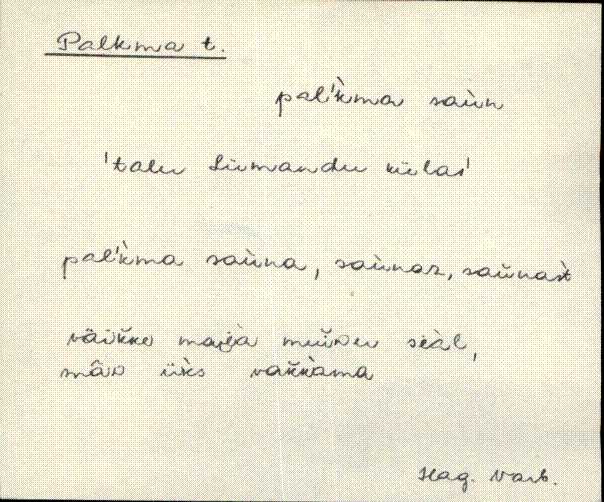 Palkma t.
pal'k̀ma saùn
'talu Liimandu külas'
pal'k̀ma saùna, saùnaz, saùnast
väikke maja muùDu seàl,
mâD üks vakkama
Hag. Varb.